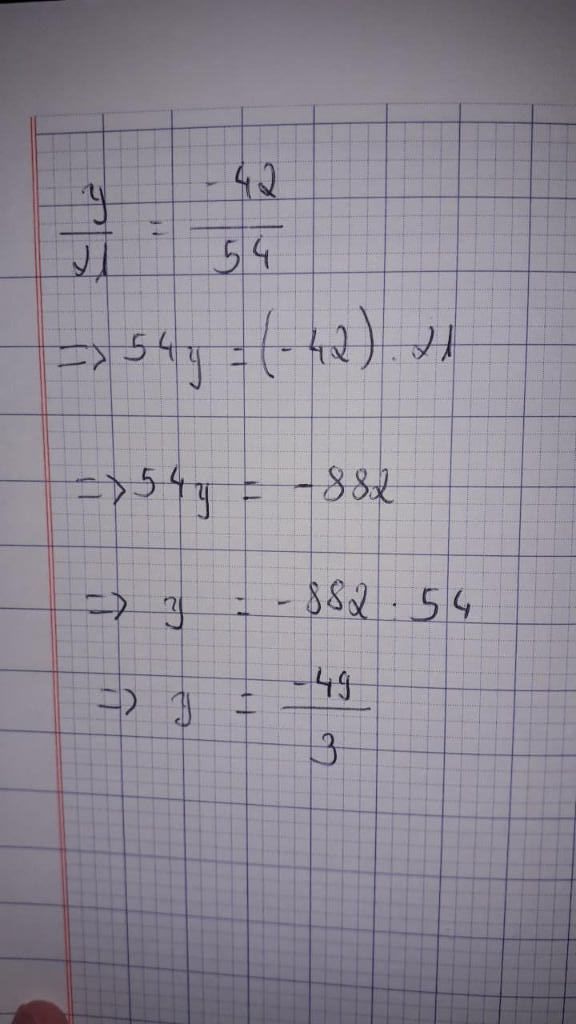 y/21 = -42/54
=> 54y = (-42) . 21
=> 54y = -882
=> y = -882 . 54
=> y = -49/3